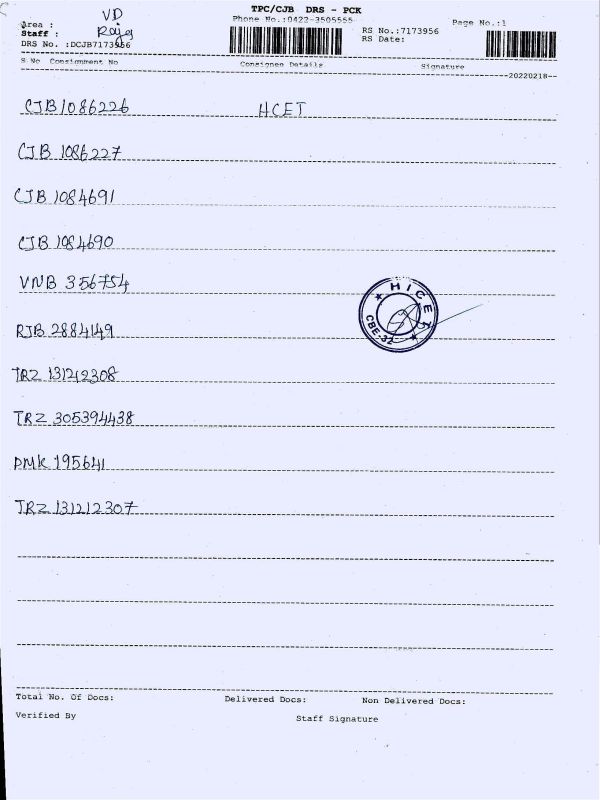 TPC/CJB DRS - PCK
Area : VD
Phone No.:0422-3505555
Page No.:1
Staff : Raja
RS No.:7173956
DRS No. :DCJB7173956
RS Date:
S No Consignment No Consignee Details Signature
20220218
CJB1086226 HCET
CJB 1086227
CJB 1084691
CJB 1084690
VNB 356754
HICET
CBE-32
RJB 2884149
TRZ 131212308
TRZ 305394438
PMK 195641
TRZ 131212307
Total No. Of Docs: Delivered Docs: Non Delivered Docs:
Verified By Staff Signature